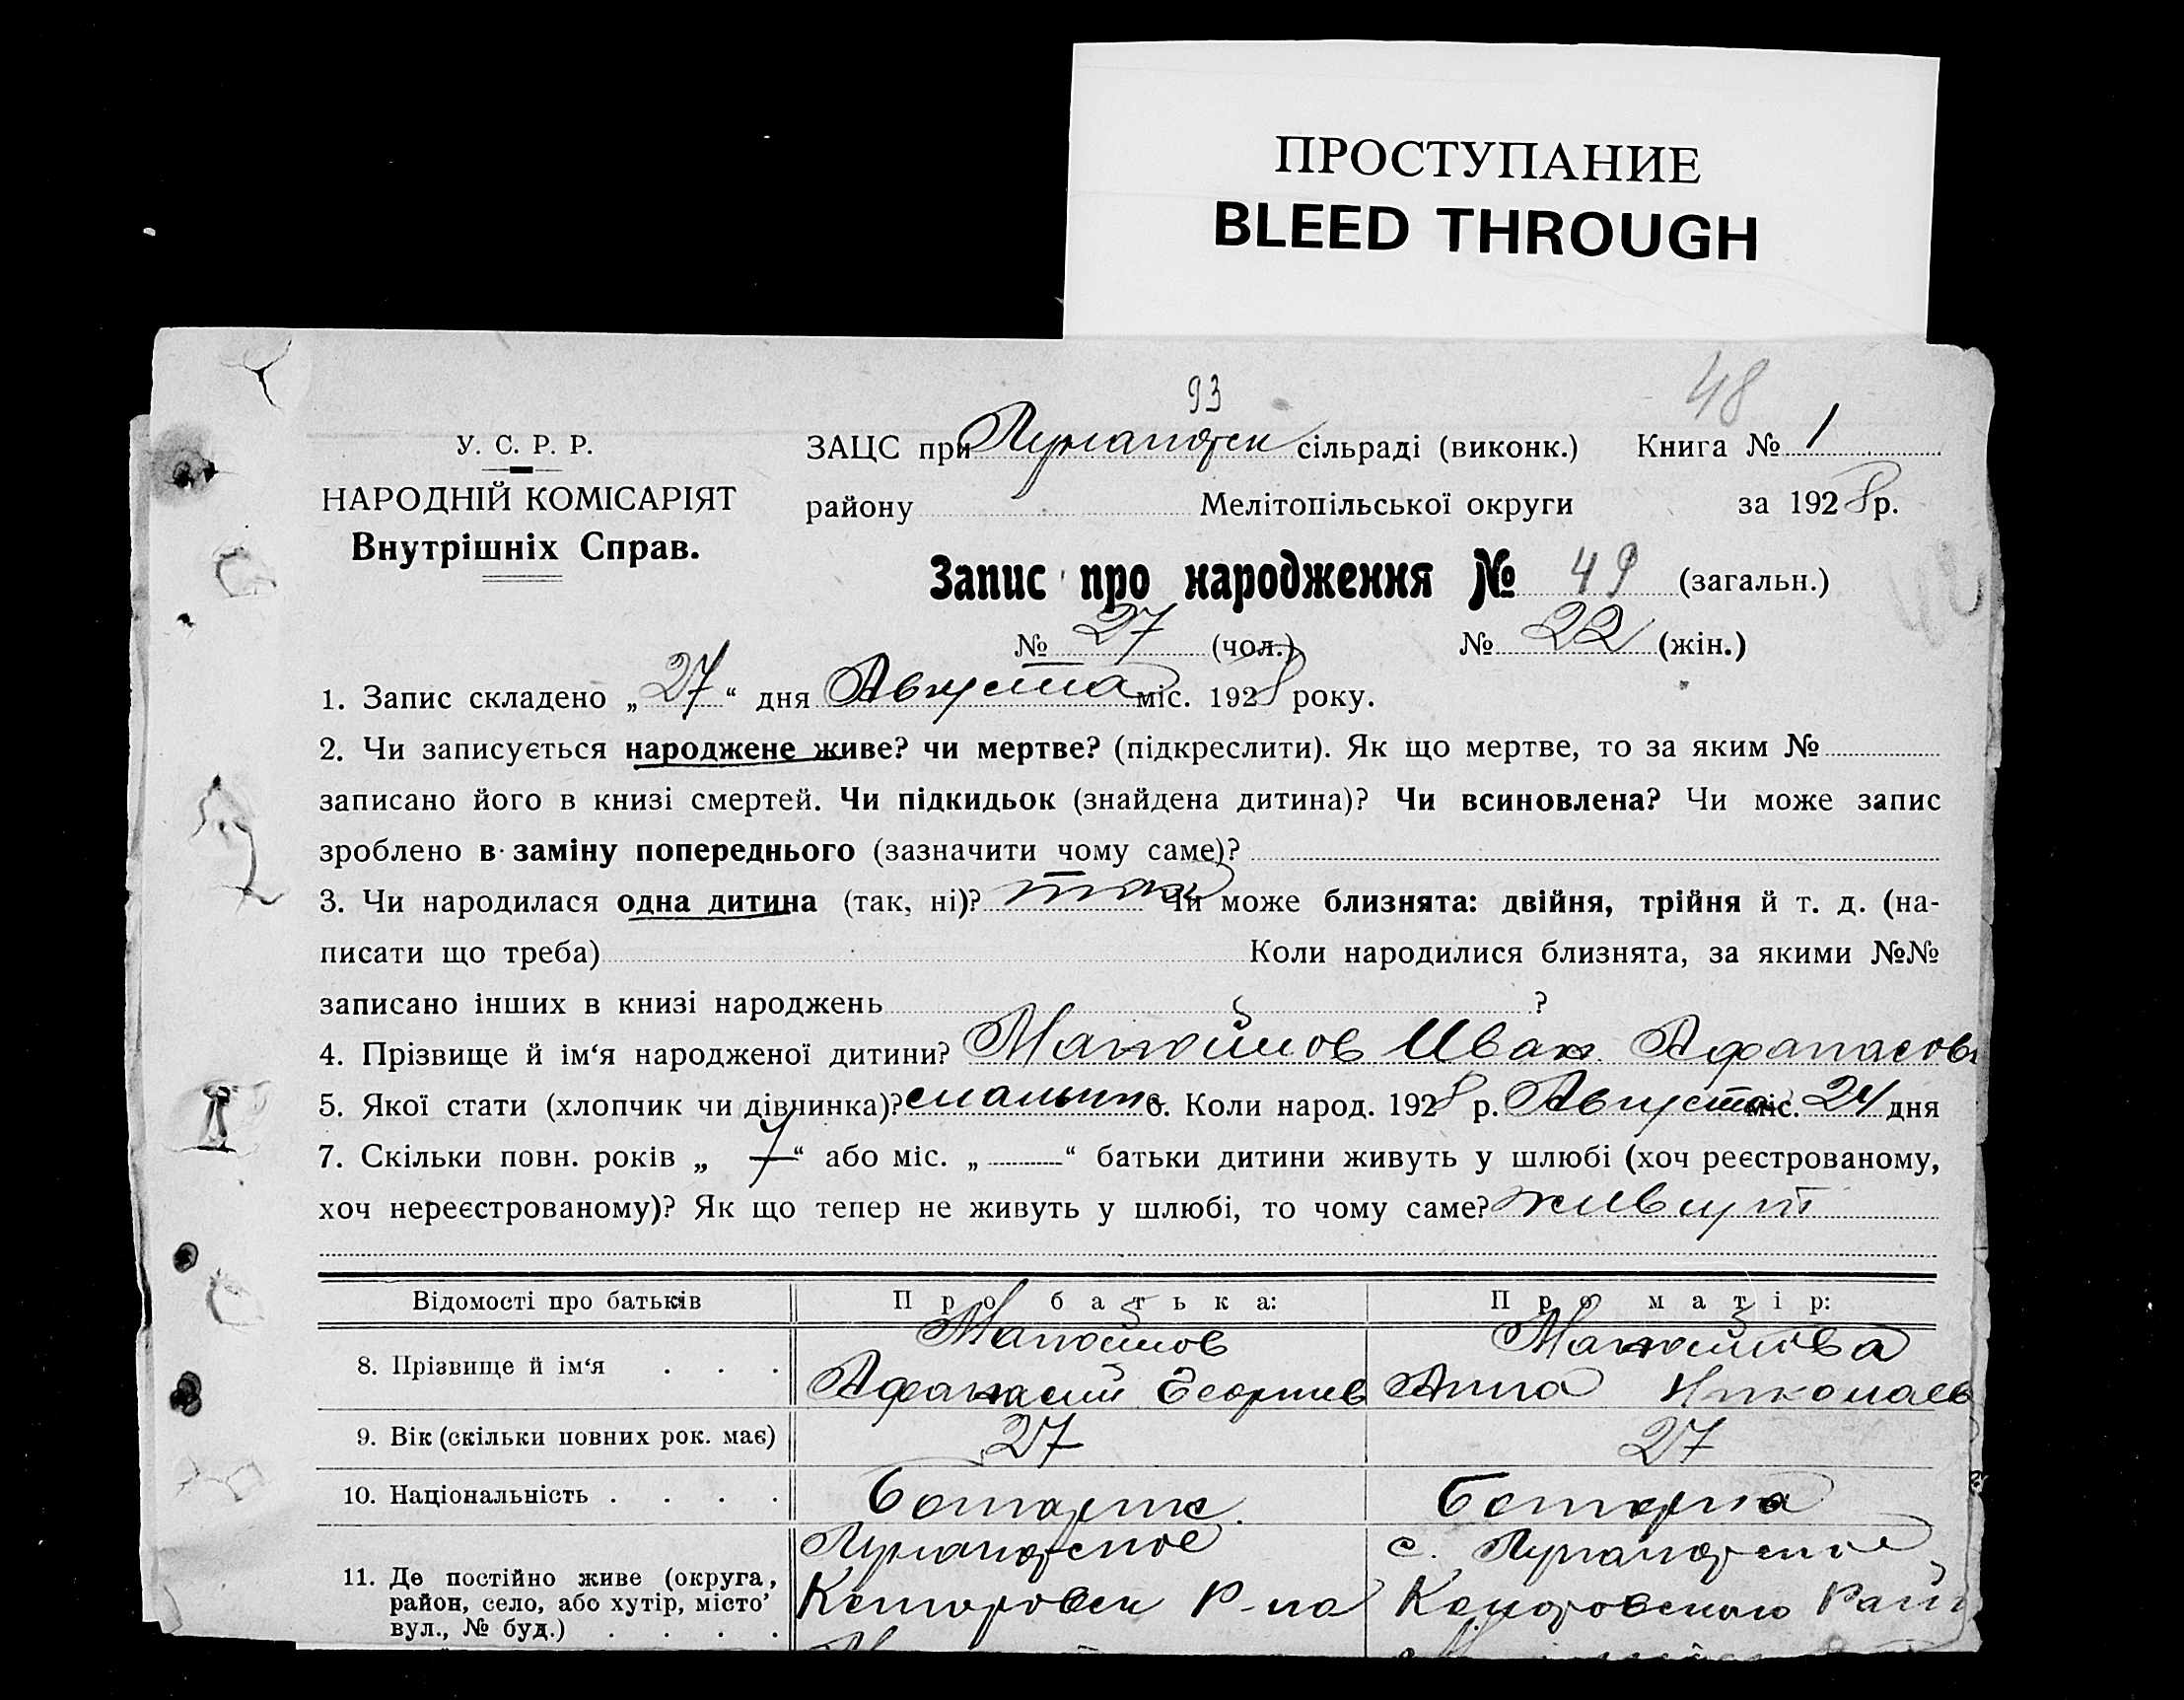 ПРОСТУПАНИЕ
BLEED THROUGH
48
93
У. С. Р. Р.
НАРОДНІЙ КОМІСАРІЯТ
Внутрішніх Справ.
ЗАЦС при сільраді (виконк.) Книга № 1
району Мелітопільської округи за 1928 р.
Запис про народження № 49 (загальн.)
№ 27 (чол.) № 22 (жін.)
1. Запис складено „ 27 “ дня Августа міс. 1928 року.
2. Чи записується народжене живе? чи мертве? (підкреслити). Як що мертве, то за яким №
записано його в книзі смертей. Чи підкидьок (знайдена дитина)? Чи всиновлена? Чи може запис
зроблено в заміну попереднього (зазначити чому саме)?
3. Чи народилася одна дитина (так, ні)? так Чи може близнята: двійня, трійня й т. д. (на-
писати що треба) Коли народилися близнята, за якими №№
записано інших в книзі народжень ?
4. Прізвище й ім‘я народженої дитини? Манойлов Иван Афанасов
5. Якої стати (хлопчик чи дівчинка)? 6. Коли народ. 1928 р. Августа міс. 24 дня
7. Скільки повн. років „ 7 “ або міс. „ “ батьки дитини живуть у шлюбі (хоч реєстрованому,
хоч нереєстрованому)? Як що тепер не живуть у шлюбі, то чому саме? живут
Відомості про батьків Про батька: Про матір:
8. Прізвище й ім‘я . . . Манойлов Афанасий Георгиев Манойлова Анна Николаев
9. Вік (скільки повних рок. має) 27 27
10. Національність . . . . болгарин болгарка
11. Де постійно живе (округа,
район, село, або хутір, місто’
вул., № буд.) . . . .
Р-на
с.